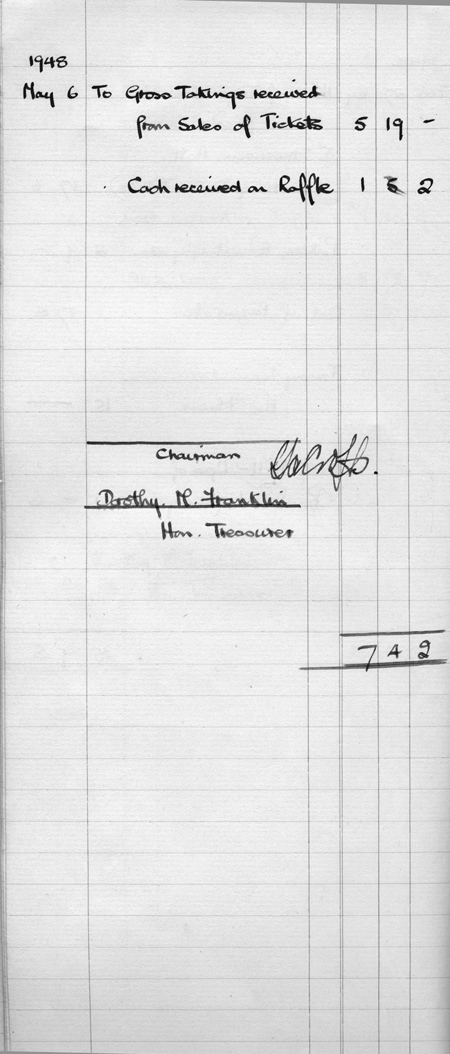 1948
May 6 To Gross Takings received
from Sales of Tickets 5 19 -
Cash received on Raffle 1 5 2
Chairman
Dorothy M. Franklin
Hon. Treasurer
7 4 2